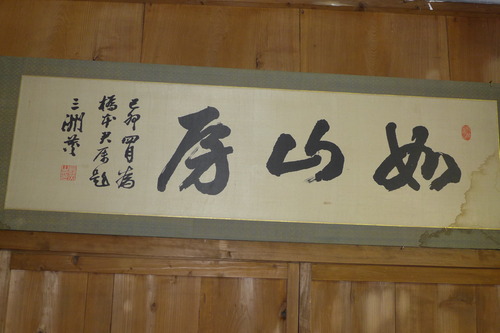 如山房
己卯四月為
橋本大房題
三洲